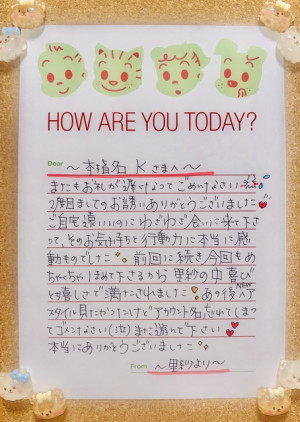 HOW ARE YOU TODAY?
Dear
〜本指名 Kさまへ〜
またもお礼が遅くなってごめんなさい
2度目ましてのお誘いありがとうございました
ご自宅遠いのにわざわざ会いに来て下さ
って、そのお気持ちと行動力に本当に感
動ものでした 前回に続き今回もめ
ちゃちゃほめて下さるから 里紗の中 喜び
と嬉しさで満たされました あの後ヘア NEW
スタイル見たかったけどアカウント名忘れてしまっ
てゴメンなさい(泣)また誘って下さい
本当にありがとうございました
From 〜里紗より〜